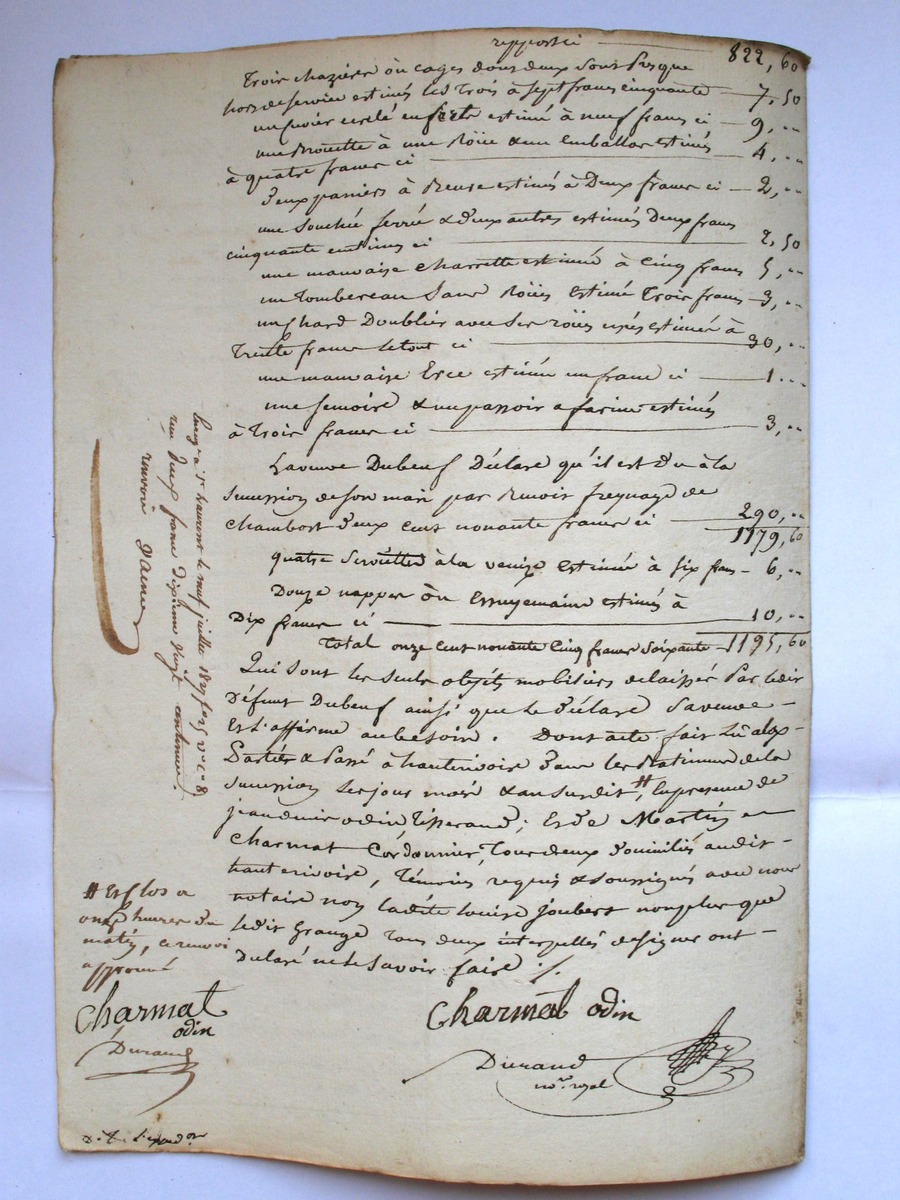 report ci 822, 60
Trois chaziere ou cages dons deux sont Presque
hors de service estimés les Trois à sept francs cinquante 7, 50
un cuvier cerclé en fert estimé à neuf francs ci 9, ..
une Brouette à une Röüe & un Emballor estimés
à quatre francs ci 4, ..
Deux paniers à estimés à Deux francs ci 2, ..
une ferré & deux autres estimés Deux francs
cinquante centimes ci 2, 50
une mauvaise charrette estimé à Cinq francs 5, ..
un Tombereau Sans Röües Estimé Trois francs 3, ..
un chard Doublier avec ses röües usés estimés à
Trente francs le tout ci 30, ..
une mauvaise Erce estimée un franc ci 1 ..
une semoire & un passoir a farine estimés
à Trois francs ci 3, ..
La veuve Dubeuf Déclare qu'il est Du à la
succession de son mari par Benoit
chambost Deux cent nonante francs ci 290, ..
1179, 60
quatre Serviettes à la venize Estimée à six francs 6, ..
Douze nappes ou Essuyemains estimés à
Dix francs ci 10, ..
Total onze cent nonante Cinq francs Soixante 1195, 60
Qui sont les seuls objets mobiliers delaissés Par ledit
Défunt Dubeuf ainsi que le Déclare Sa veuve
Et l'affirme au besoin. Dont acte fait Lu aux
Parties & Passé à hauterivoire Dans les Batimens de la
succession les jour mois & an susdit, # En presence de
jean denis odin Tisserand; Et de Martin
Charmat Cordonnier, Tous deux Domiciliés audit
hauterivoire, Témoins requis & soussignés avec nous
notaire non ladite Louise Joubert non plus que
ledit Grange Tous deux interpellés de signer ont
Declaré ne le Savoir faire ./.
# Et Clos a
onze heures du
matin, ce renvoi
approuvé
Charmat
odin
Durand
Charmat odin
Durand
no.re royal
Enrg. à St. Laurent le neuf juillet 1827 fo. 25 vo. c. 8
reçu Deux francs Dixieme vingt centimes.